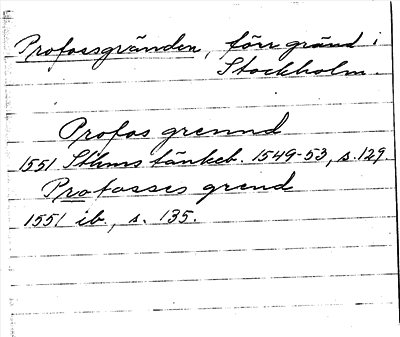 Profossgränden, förr gränd i
Stockholm.
Profos grennd
1551 Sthms tänkeb. 1549-53, s. 129.
Profosses grend
1551 ib., s. 135.